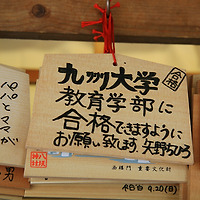 九州大学
合格
教育学部に
合格できますように
お願い致します。矢野ちひろ
八坂
神社
西楼門 重要文化財
9.20(日)
パパとママが
男